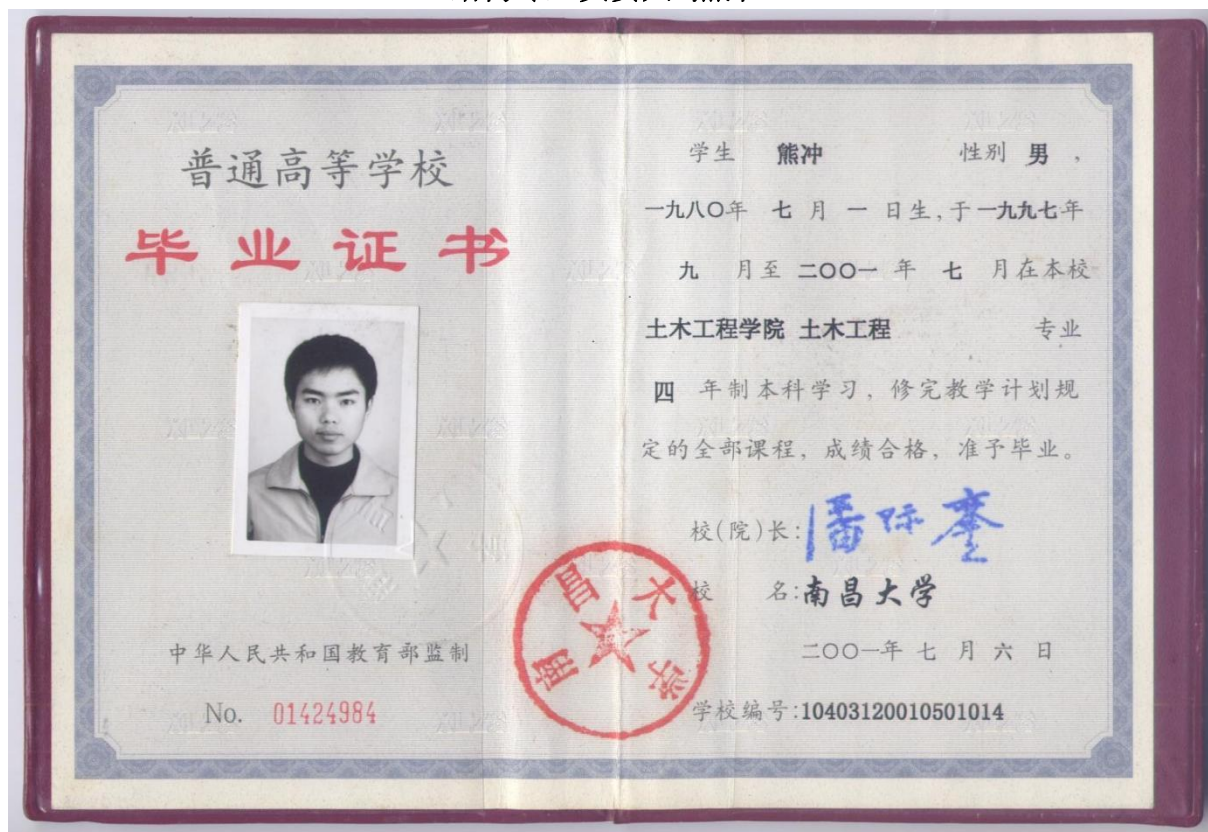 普通高等学校
毕业证书
中华人民共和国教育部监制
No. 01424984
学生 熊冲 性别 男 ,
一九八〇年 七 月 一 日生,于一九九七年
九 月至 二〇〇一 年 七 月在本校
土木工程学院 土木工程 专业
四 年制本科学习, 修完教学计划规
定的全部课程, 成绩合格, 准予毕业。
校(院)长: 潘际銮
校 名:南昌大学
二〇〇一年 七 月 六 日
学校编号:10403120010501014
南昌大学